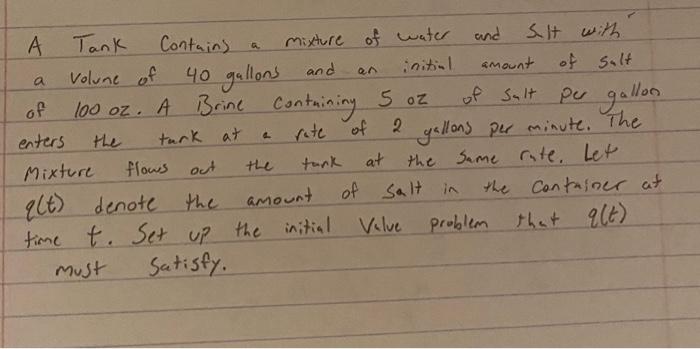 A Tank Contains a mixture of water and Salt with
a Volume of 40 gallons and an initial amount of Salt
of 100 oz. A Brine Containing 5 oz of Salt per gallon
enters the tank at a rate of 2 gallons per minute. The
Mixture flows out the tank at the same rate. Let
q(t) denote the amount of salt in the container at
time t. Set up the initial Value problem that q(t)
must Satisfy.